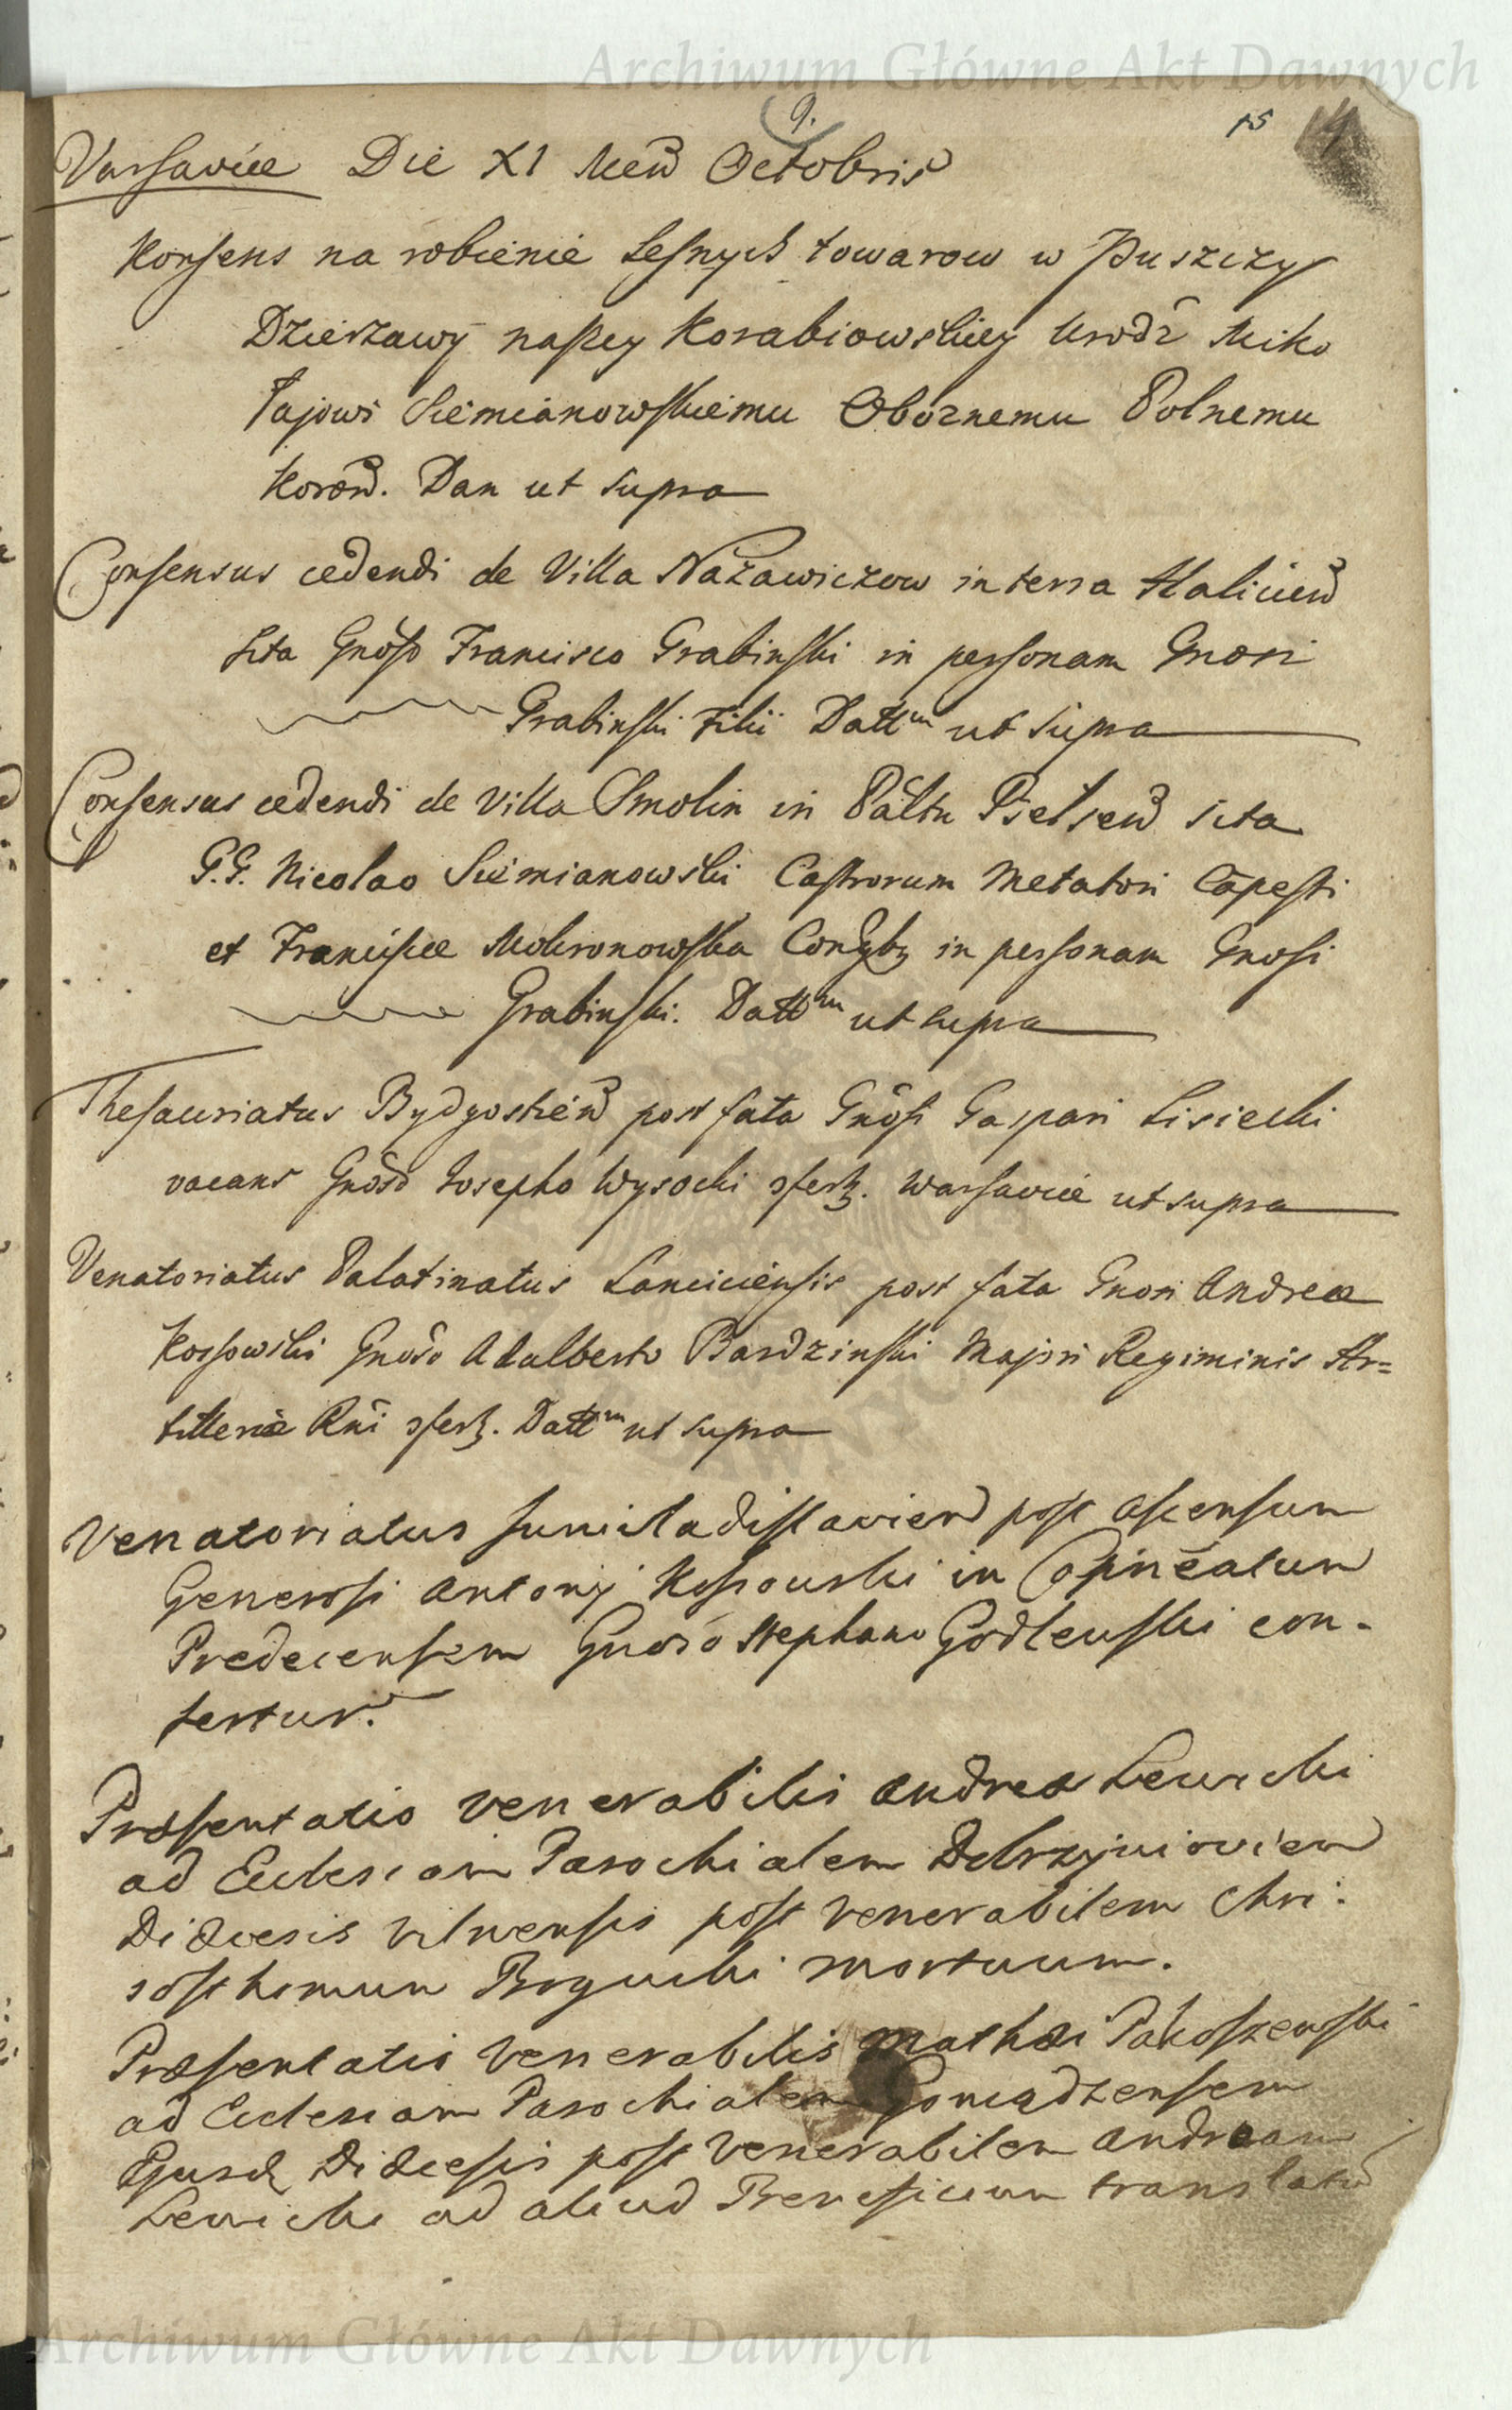 Archiwum Główne Akt Dawnych
9.
15 14
Varsaviæ Die XI Men̄ Octobris
Konsens na robienie Leſnych towarow w Puszczy
Dzierzawy naſzey Korabiowskiey Urodz̄ Miko
łajowi Siemianowſkiemu Oboznemu Polnemu
Koron̄. Dan ut supra
Consensus cedendi de Villa Nazawiczow in terra Halicien̄
sita Gnōſo Francisco Grabinſki in perſonam Gnosi
Grabinſki Filii Datt^m ut supra
Consensus cedendi de Villa Smolin in Pāltu Bielſen̄ sita
G.G. Nicolao Siemianowski Caſtrorum Metatori Cāpeſti
et Franciſcæ Mokronowſka Conjgbz in perſonam Gnoſi
Grabinſki. Datt^m ut supra
Theſauriatus Bydgoſtien̄ post fata Gnōſi Gaspari Lisiecki
vacans Gnōso Josepho Wysocki ↄfertz. Warſaviæ ut supra
Venatoriatus Palatinatus Lanciciēnſis post fata Gnosi Andreæ
Koſſowski Gnōso Adalberto Bardzinſki Majori Regiminis Ar=
tilleriæ Rni ↄfertz. Datt^m ut supra
Venatoriatus Juniwladiſlavien̄ poſt aſcenſum
Generoſi Antonij Koſſowski in
Predecenſem Gnoso Stephano Godlewſki con-
fertur.
Præſentatio venerabilis Andreæ Lewicki
ad Eccleſiam Parochialem Dobrzyniovien̄
Diœcesis Vilnenſis poſt Venerabilem Chri:
soſthomum Bogucki mortuum.
Præſentatio Venerabilis Mathæi Pakoſzewſki
ad Eccleſiam Parochialem Goniądzenſem
Ejusd Diœceſis poſt Venerabilem Andream
Lewicki ad aliud Beneficium translatū
Archiwum Główne Akt Dawnych